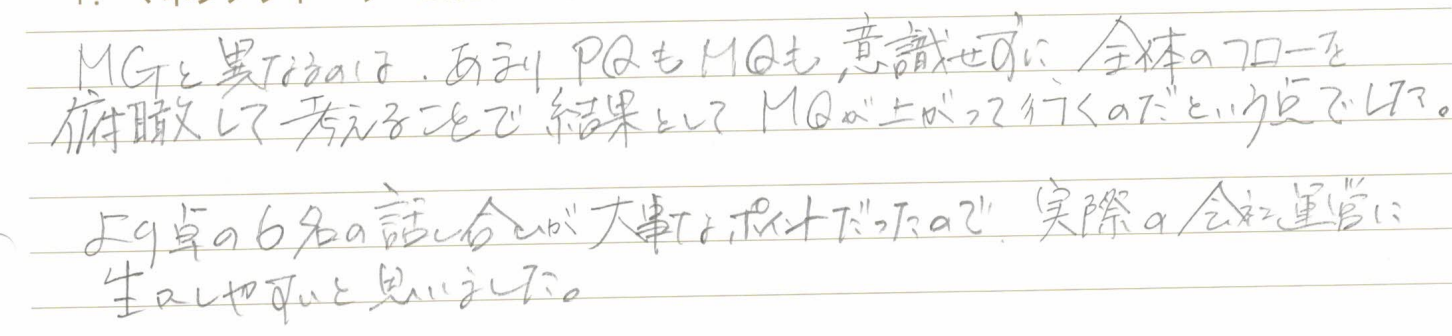 MGと異なるのは、あまりPQもMQも意識せずに全体のフローを
俯瞰して考えることで結果としてMQが上がって行くのだという点でした。
より卓の6名の話し合いが大事なポイントだったので、実際の会社運営に
生かしやすいと思いました。